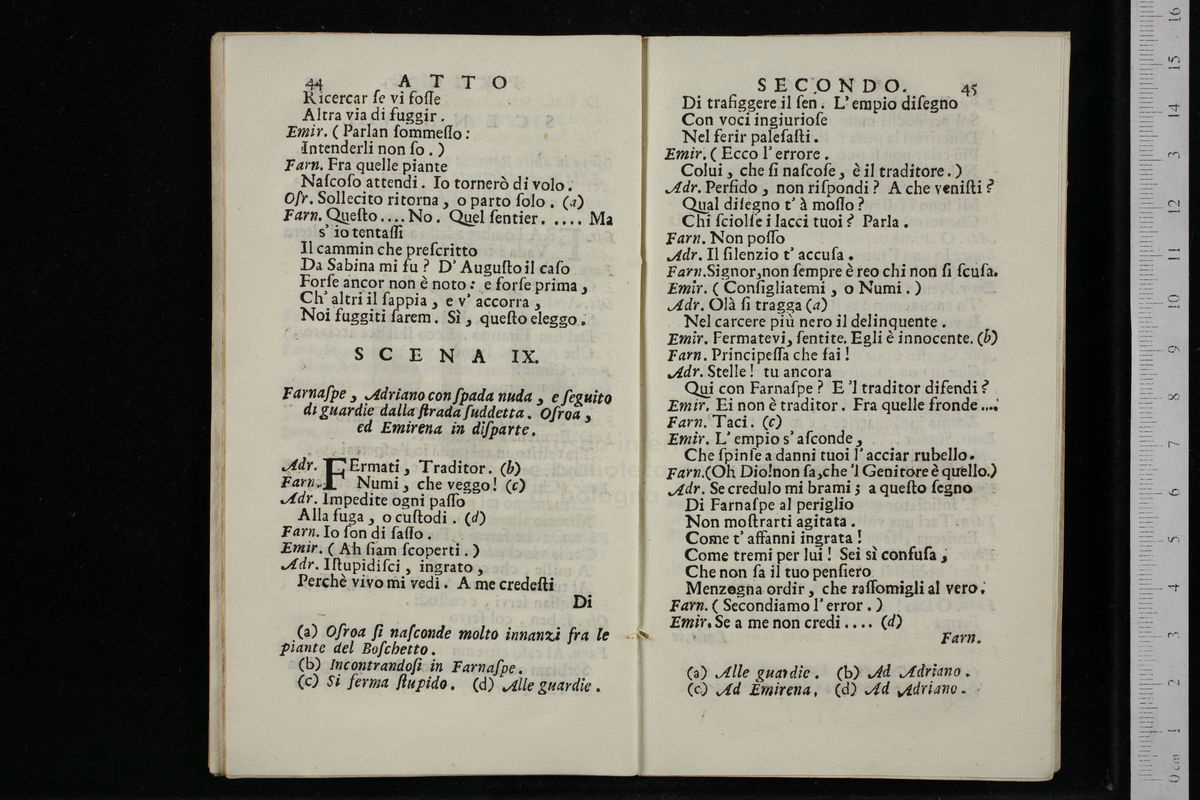 44 ATTO
Ricercar ſe vi foſſe
Altra via di fuggir.
Emir. (Parlan ſommeſſo:
Intenderli non ſo.)
Farn. Fra quelle piante
Naſcoſo attendi. Io tornerò di volo.
Oſr. Sollecito ritorna, o parto ſolo. (a)
Farn. Queſto.... No. Quel ſentier. .... Ma
s' io tentaſſi
Il cammin che preſcritto
Da Sabina mi fu? D' Auguſto il caſo
Forſe ancor non è noto: e forſe prima,
Ch' altri il ſappia, e v' accorra,
Noi fuggiti ſarem. Sì, queſto eleggo.
SCENA IX.
Farnaſpe, Adriano con ſpada nuda, e ſeguito
di guardie dalla ſtrada ſuddetta. Oſroa,
ed Emirena in diſparte.
Adr. FErmati, Traditor. (b)
Farn. Numi, che veggo! (c)
Adr. Impedite ogni paſſo
Alla fuga, o cuſtodi. (d)
Farn. Io ſon di ſaſſo.
Emir. (Ah ſiam ſcoperti.)
Adr. Iſtupidiſci, ingrato,
Perchè vivo mi vedi. A me credeſti
Di
(a) Oſroa ſi naſconde molto innanzi fra le
piante del Boſchetto.
(b) Incontrandoſi in Farnaſpe.
(c) Si ferma ſtupido. (d) Alle guardie.
SECONDO. 45
Di trafiggere il ſen. L' empio diſegno
Con voci ingiurioſe
Nel ferir paleſaſti.
Emir. (Ecco l' errore.
Colui, che ſi naſcoſe, è il traditore.)
Adr. Perfido, non riſpondi? A che veniſti?
Qual diſegno t' à moſſo?
Chi ſciolſe i lacci tuoi? Parla.
Farn. Non poſſo
Adr. Il ſilenzio t' accuſa.
Farn. Signor, non ſempre è reo chi non ſi ſcuſa.
Emir. (Conſigliatemi, o Numi.)
Adr. Olà ſi tragga (a)
Nel carcere più nero il delinquente.
Emir. Fermatevi, ſentite. Egli è innocente. (b)
Farn. Principeſſa che fai!
Adr. Stelle! tu ancora
Qui con Farnaſpe? E 'l traditor difendi?
Emir. Ei non è traditor. Fra quelle fronde ....
Farn. Taci. (c)
Emir. L' empio s' aſconde,
Che ſpinſe a danni tuoi l' acciar rubello.
Farn. (Oh Dio! non ſa, che 'l Genitore è quello.)
Adr. Se credulo mi brami; a queſto ſegno
Di Farnaſpe al periglio
Non moſtrarti agitata.
Come t' affanni ingrata!
Come tremi per lui! Sei sì confuſa,
Che non ſa il tuo penſiero
Menzogna ordir, che raſſomigli al vero.
Farn. (Secondiamo l' error.)
Emir. Se a me non credi.... (d)
Farn.
(a) Alle guardie. (b) Ad Adriano.
(c) Ad Emirena. (d) Ad Adriano.
0 cm 1 2 3 4 5 6 7 8 9 10 11 12 13 14 15 16